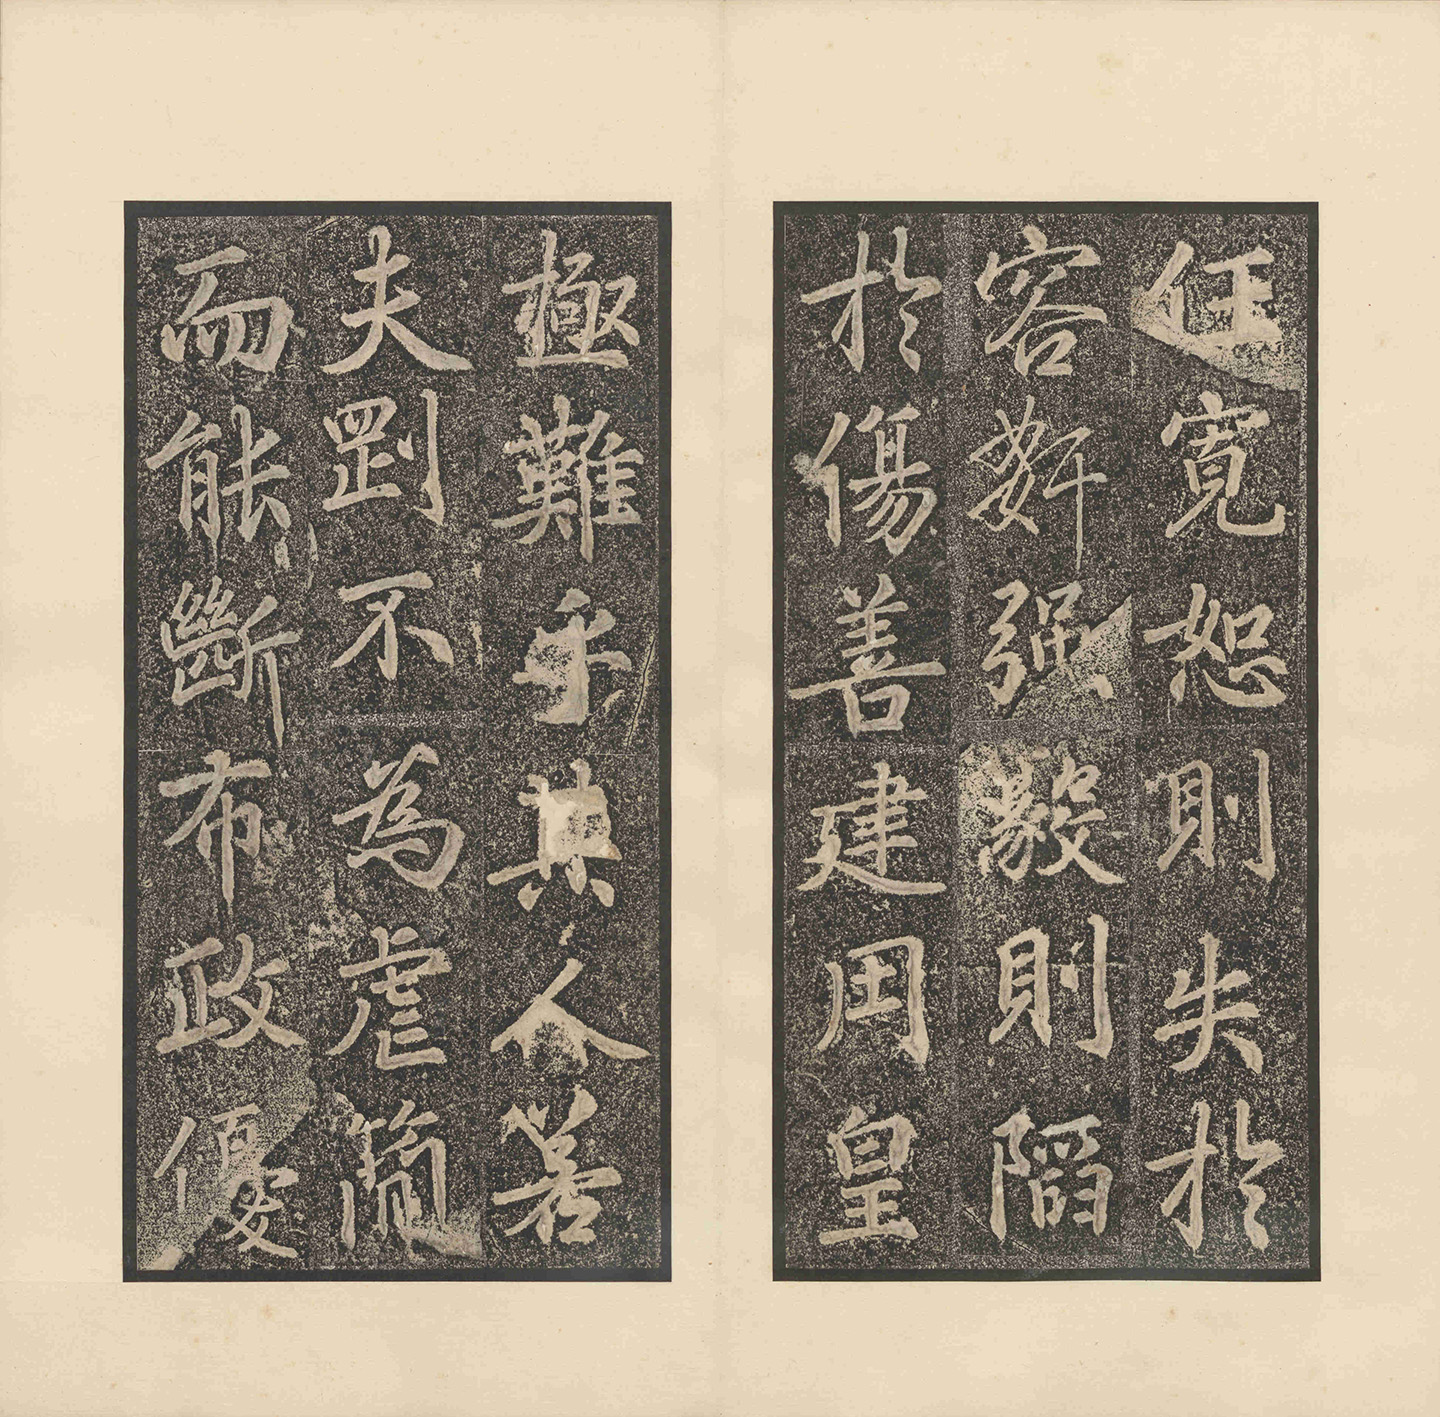 任寬恕則失於
容姧強毅則陷
於傷善建用皇
極難乎其人若
夫剛不為虐簡
而能斷布政優